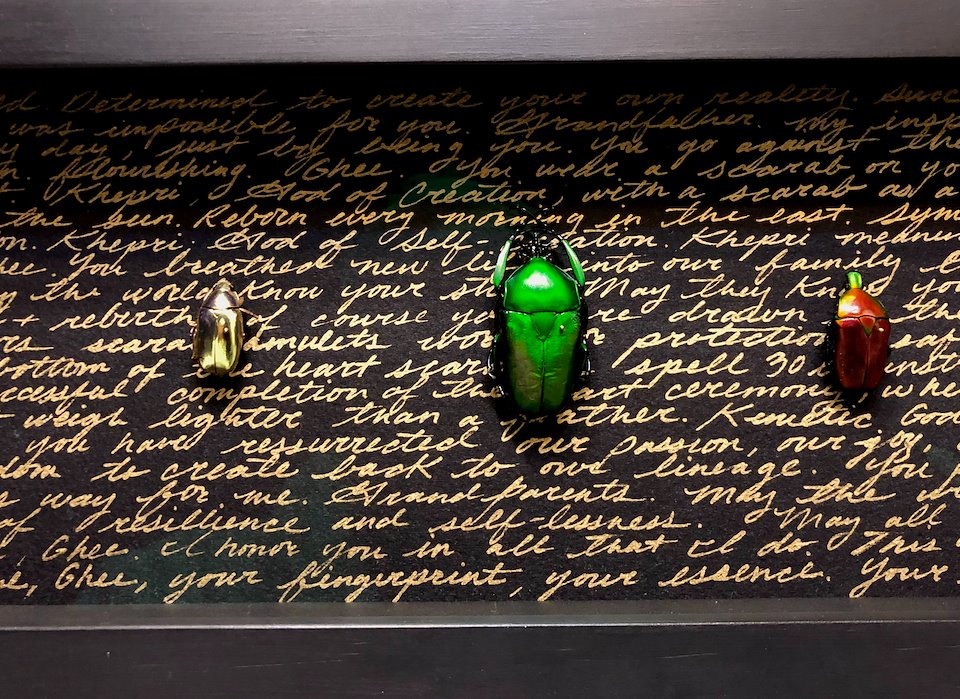 d. Determined to create your own reality. Succ
was impossible for you. Grandfather. My insp
y day, just by being you. You go against the
n flourishing. Ghee. You wear a scarab on yo
t Khepri, God of Creation, with a scarab as a
the sun. Reborn every morning in the east. Sym
on. Khepri, God of Self- ation. Khepri meanin
hee. You breathed new li into our family
g the world Know your st May they Know you
+ rebirth of course yo re drawn th
rs scara amulets wor r protection, saf
bottom of the heart scar spell 30 inst
ccessful completion of the art ceremony, whe
t weigh lighter than a eather. Kemetic God
you have resurrected your passion, our joy,
dom to create back to our lineage. You p
e way for me. Grandparents. May the wo
of resillience and self-lessness. May all
, Ghee. I honor you in all that I do. This
e, Ghee, your fingerprint, your essence. Your